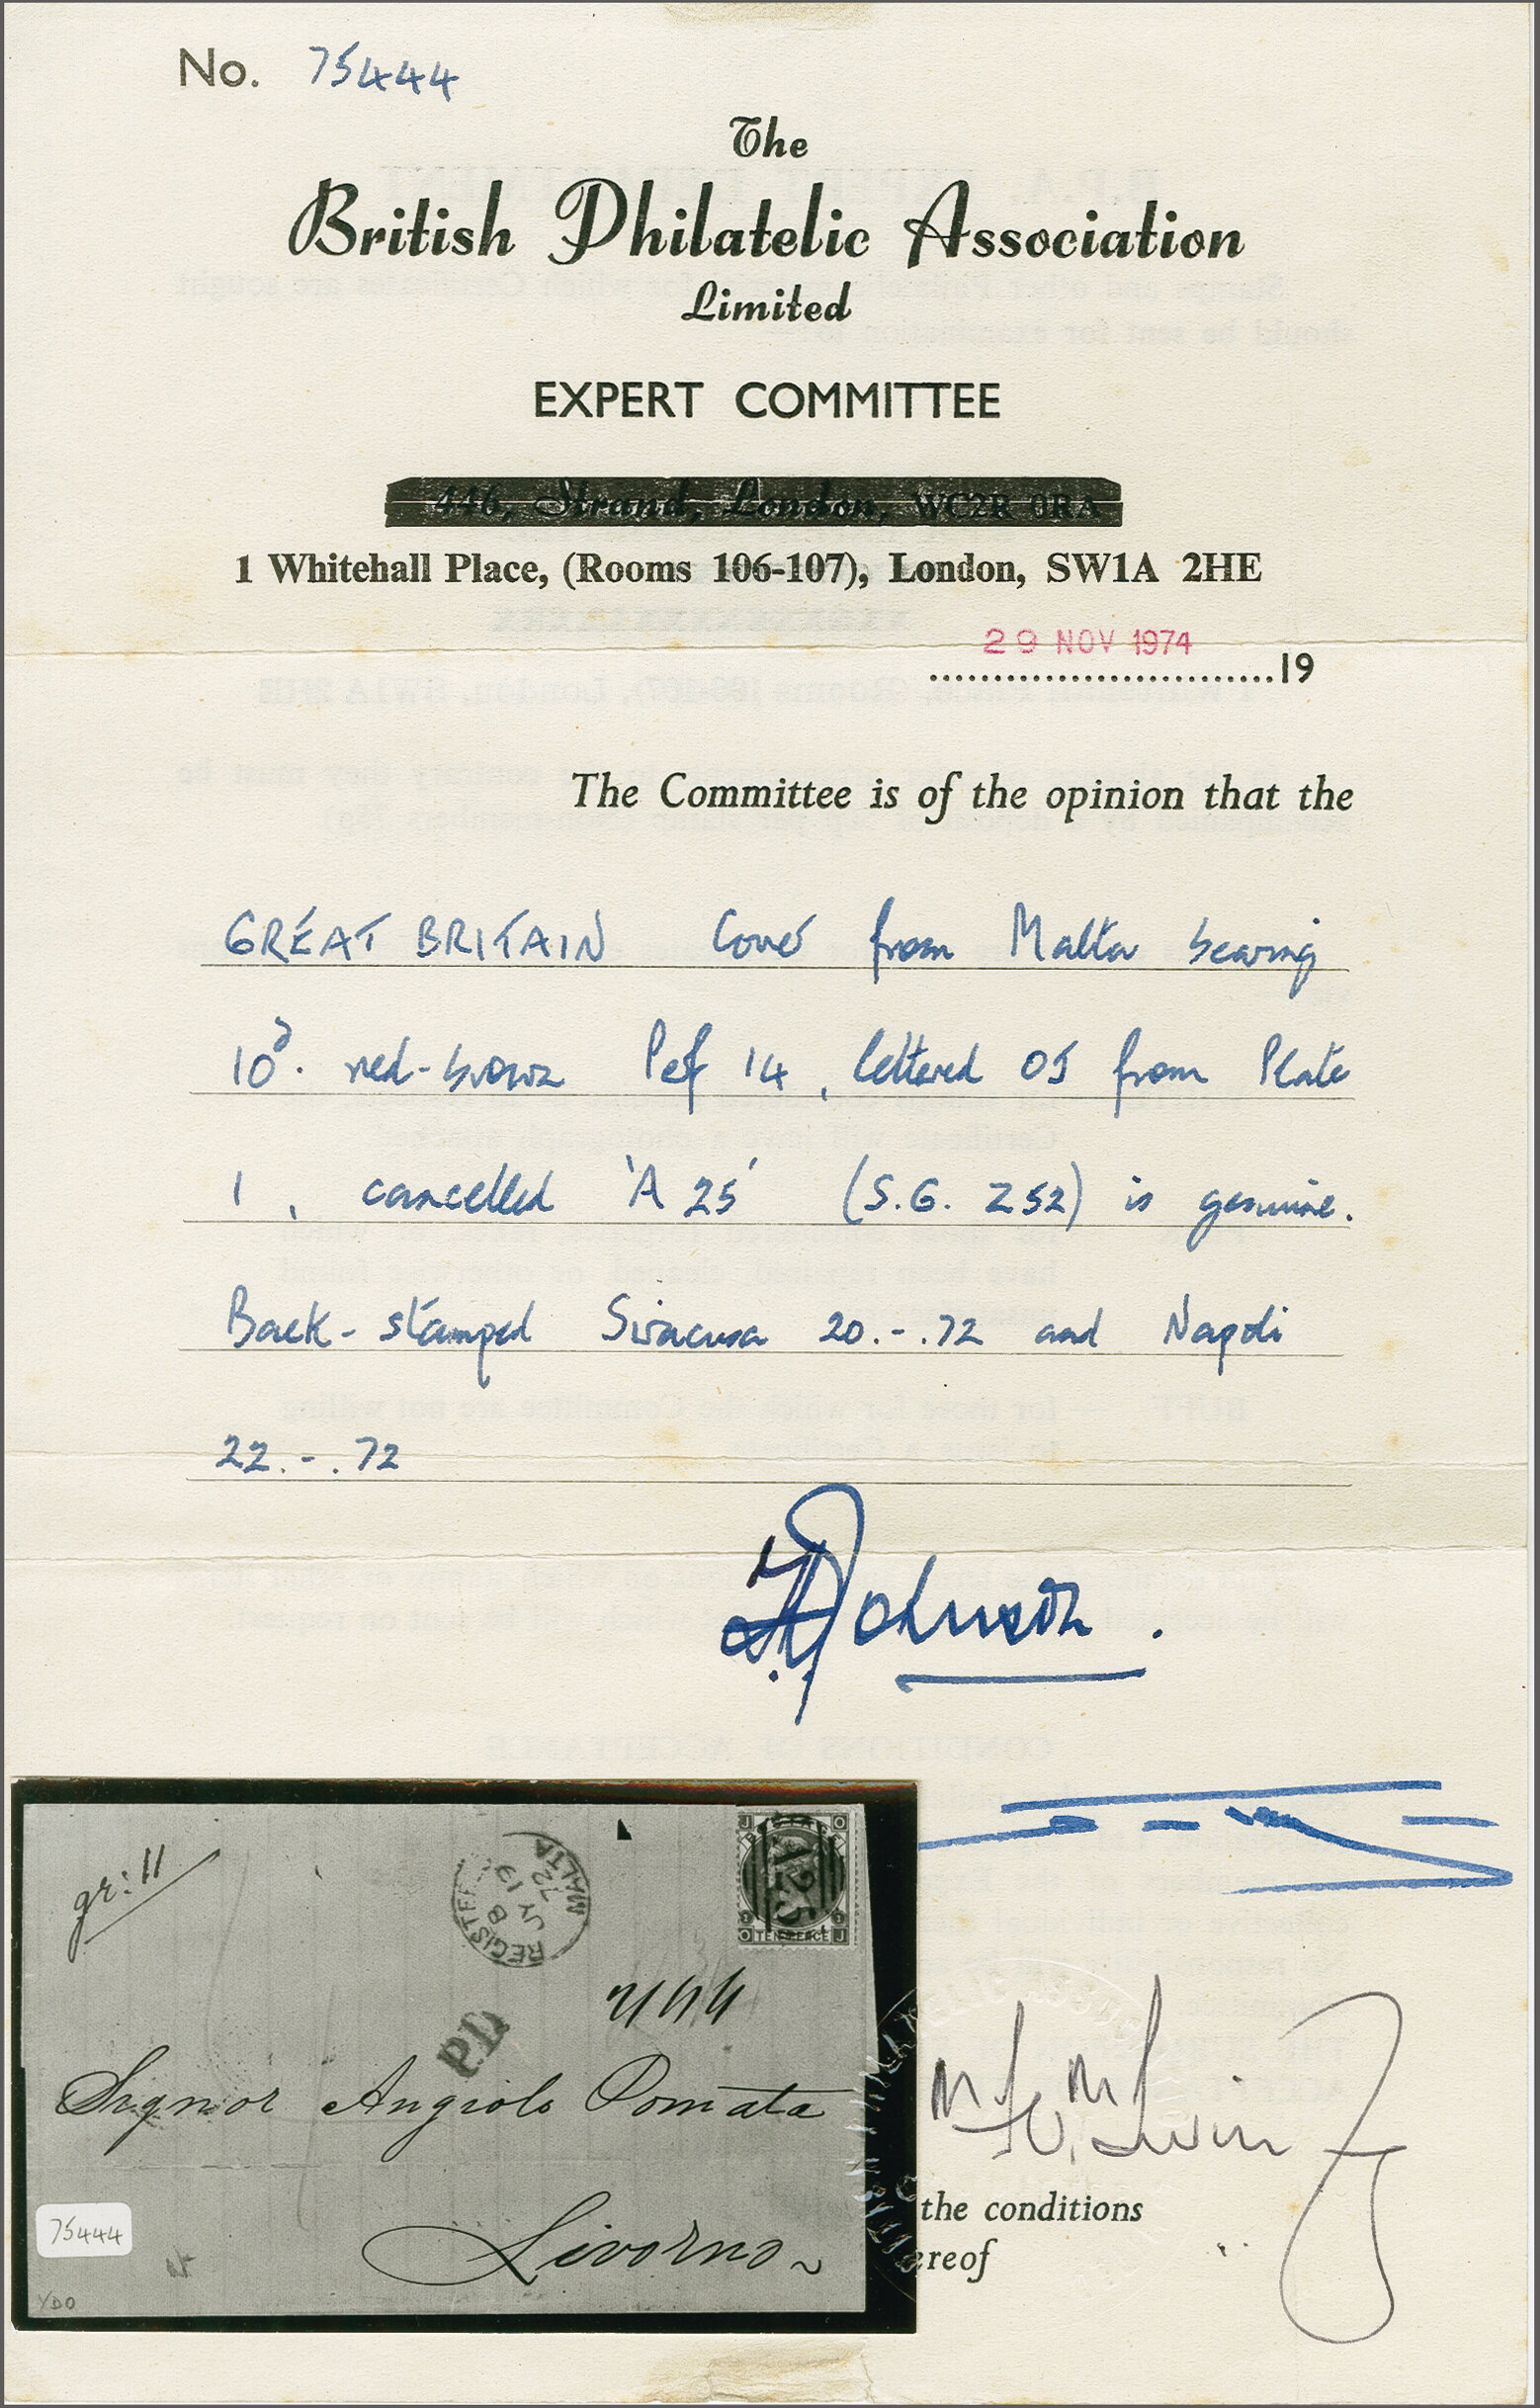 No. 75444
The
British Philatelic Association
Limited
EXPERT COMMITTEE
446, Strand, London, WC2R 0RA
1 Whitehall Place, (Rooms 106-107), London, SW1A 2HE
29 NOV 1974
19
The Committee is of the opinion that the
GREAT BRITAIN Cover from Malta bearing
10d. red-brown Perf 14, lettered OJ from Plate
1, cancelled 'A 25' (S.G. Z52) is genuine.
Back-stamped Siracusa 20.-.72 and Napoli
22.-.72
Johnson.
gr: 11
REGISTE
MALTA
B
JY 19
72
J O
A25
O TEN PENCE J
PD
Signor Angiolo Pomata
Livorno
75444
YDO
the conditions
ereof